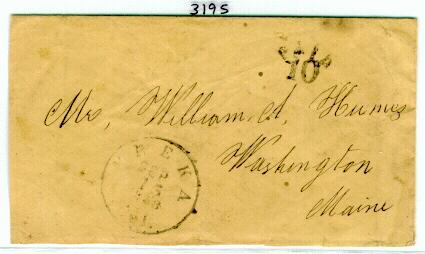 3195
PAID
10
Mrs, William A, Humes
Washington
Maine